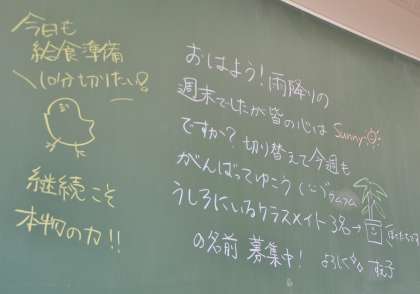 今日も
給食準備
10分切りたい!
継続こそ
本物の力!!
おはよう!雨降りの
週末でしたが皆の心は Sunny
ですか?切り替えて今週も
がんばってゆこう
うしろにいるクラスメイト3名→
の名前 募集中! よろしくな